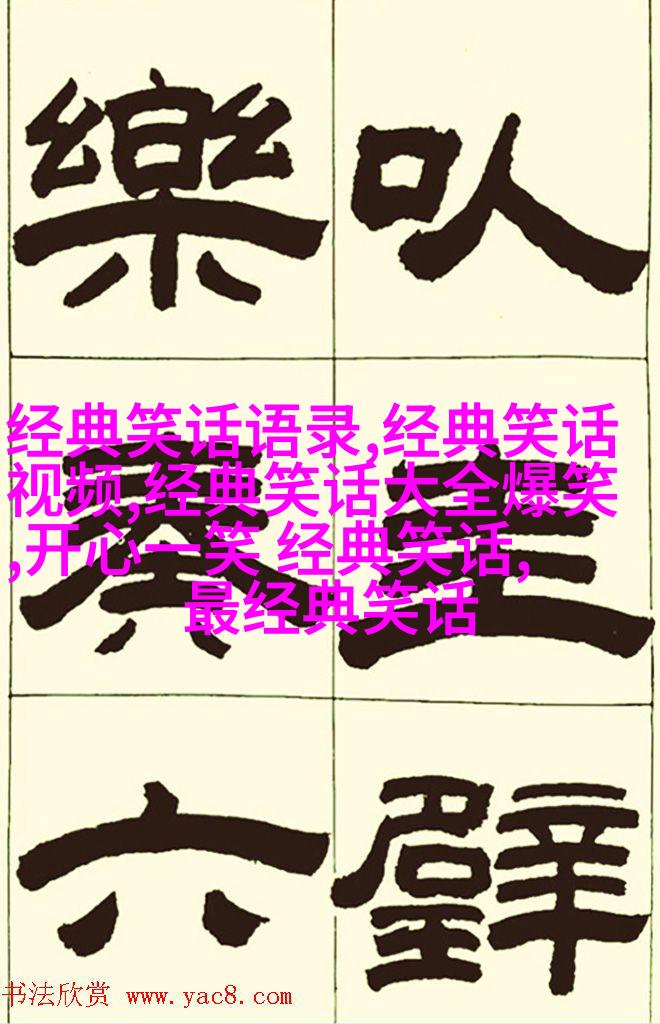 㕥圭璧
樂奏六
经典笑话语录,经典笑话
视频,经典笑话大全爆笑
,开心一笑 经典笑话,
最经典笑话
书法欣赏 www.yac8.com